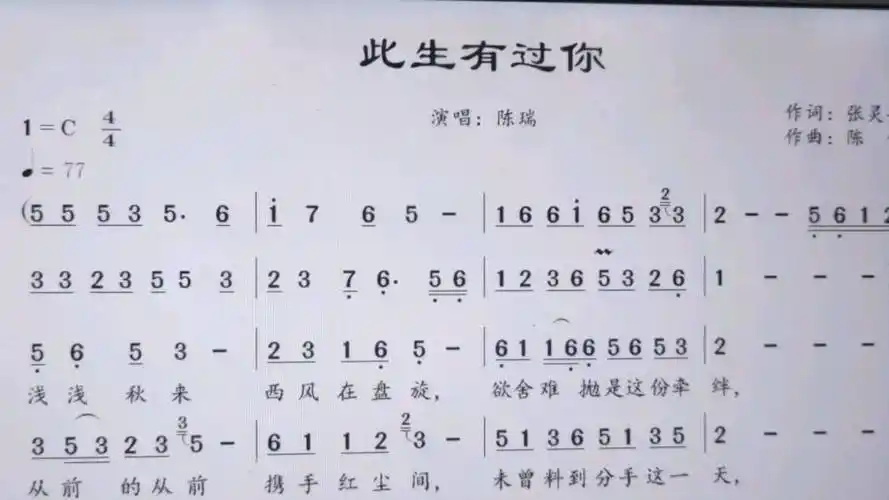 此生有过你
1=C 4/4
演唱：陈瑞
作词：张灵
作曲：陈
♩=77
(5 5 5 3 5· 6 | i 7 6 5 - | 1 6 6 i 6 5 3 2 3 | 2 - - 5 6 1 2
3 3 2 3 5 5 3 | 2 3 7 6· 5 6 | 1 2 3 6 5 3 2 6 | 1 - - -
5 6 5 3 - | 2 3 1 6 5 - | 6 1 1 6 6 5 6 5 3 | 2 - - -
浅浅 秋来 西风在盘旋， 欲舍难 抛是这份牵 绊，
3 5 3 2 3 3 5 - | 6 1 1 2 2 3 - | 5 1 3 6 5 1 3 5 | 2 - - -
从前 的从前 携手红尘间， 未曾料到分手这一 天，